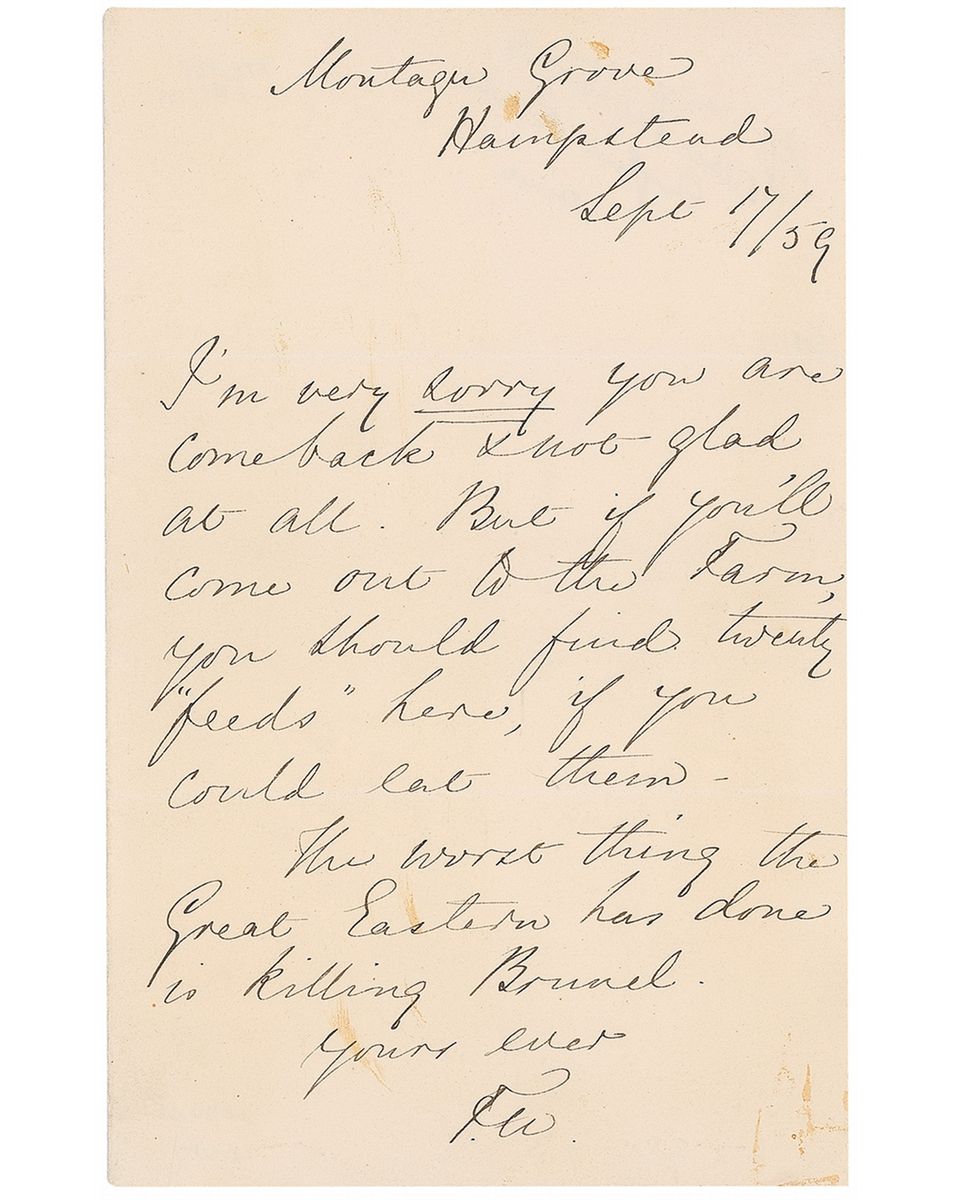 Montagu Grove
Hampstead
Sept 17/59
I'm very sorry you are
come back & not glad
at all. But if you'll
come out to the Farm,
you should find twenty
"feeds" here, if you
could eat them -
The worst thing the
Great Eastern has done
is killing Brunel.
Yours ever